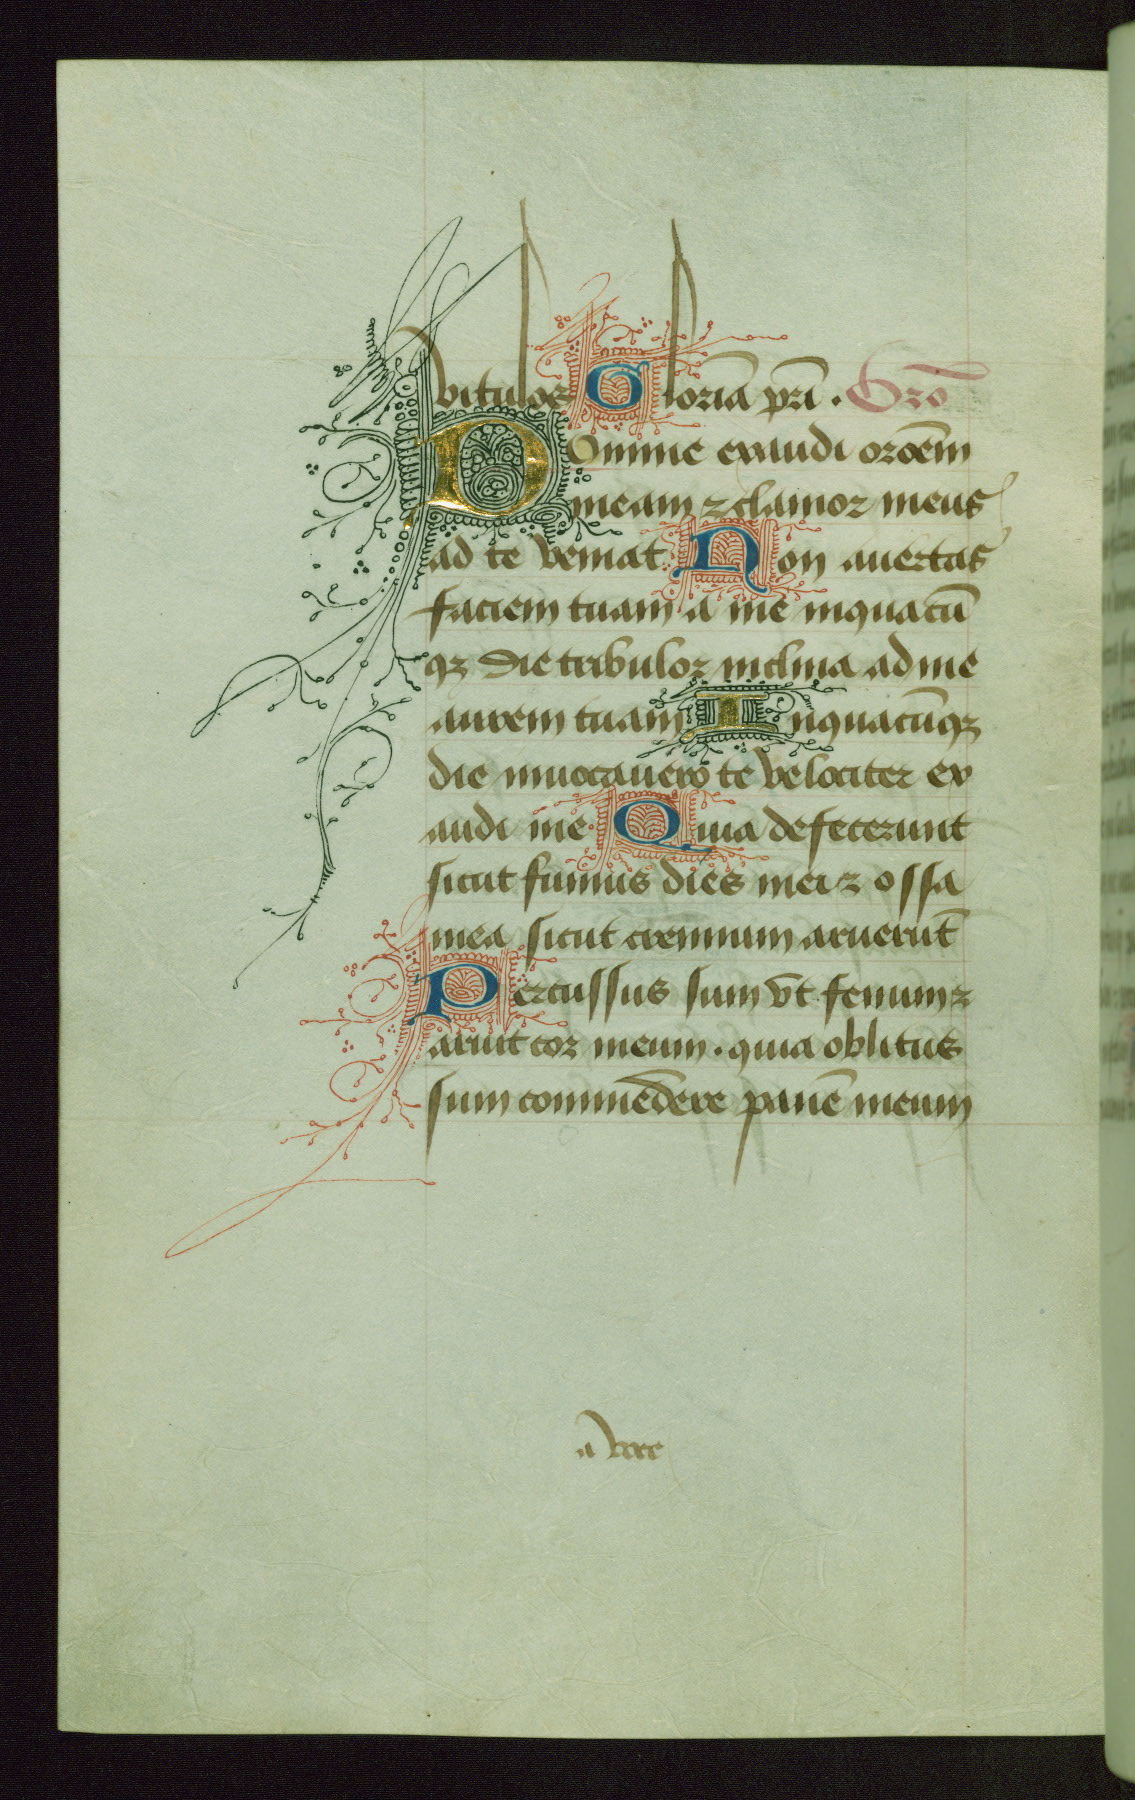 vitulos Gloriā pr̄i . Orō
Domine exaudi oroēm
meam ⁊ clamor meus
ad te veniat Non auertas
faciem tuam a me inquacū
qꝫ die tribulor inclina ad me
aurem tuam Inquacūqꝫ
die inuocauero te velociter ex
audi me Quia defecerunt
sicut fumus dies mei ⁊ ossa
mea sicut cremium aruerūt
Percussus sum vt fenum ⁊
aruit cor meum . quia oblitus
sum commēdere panē meum
a voce